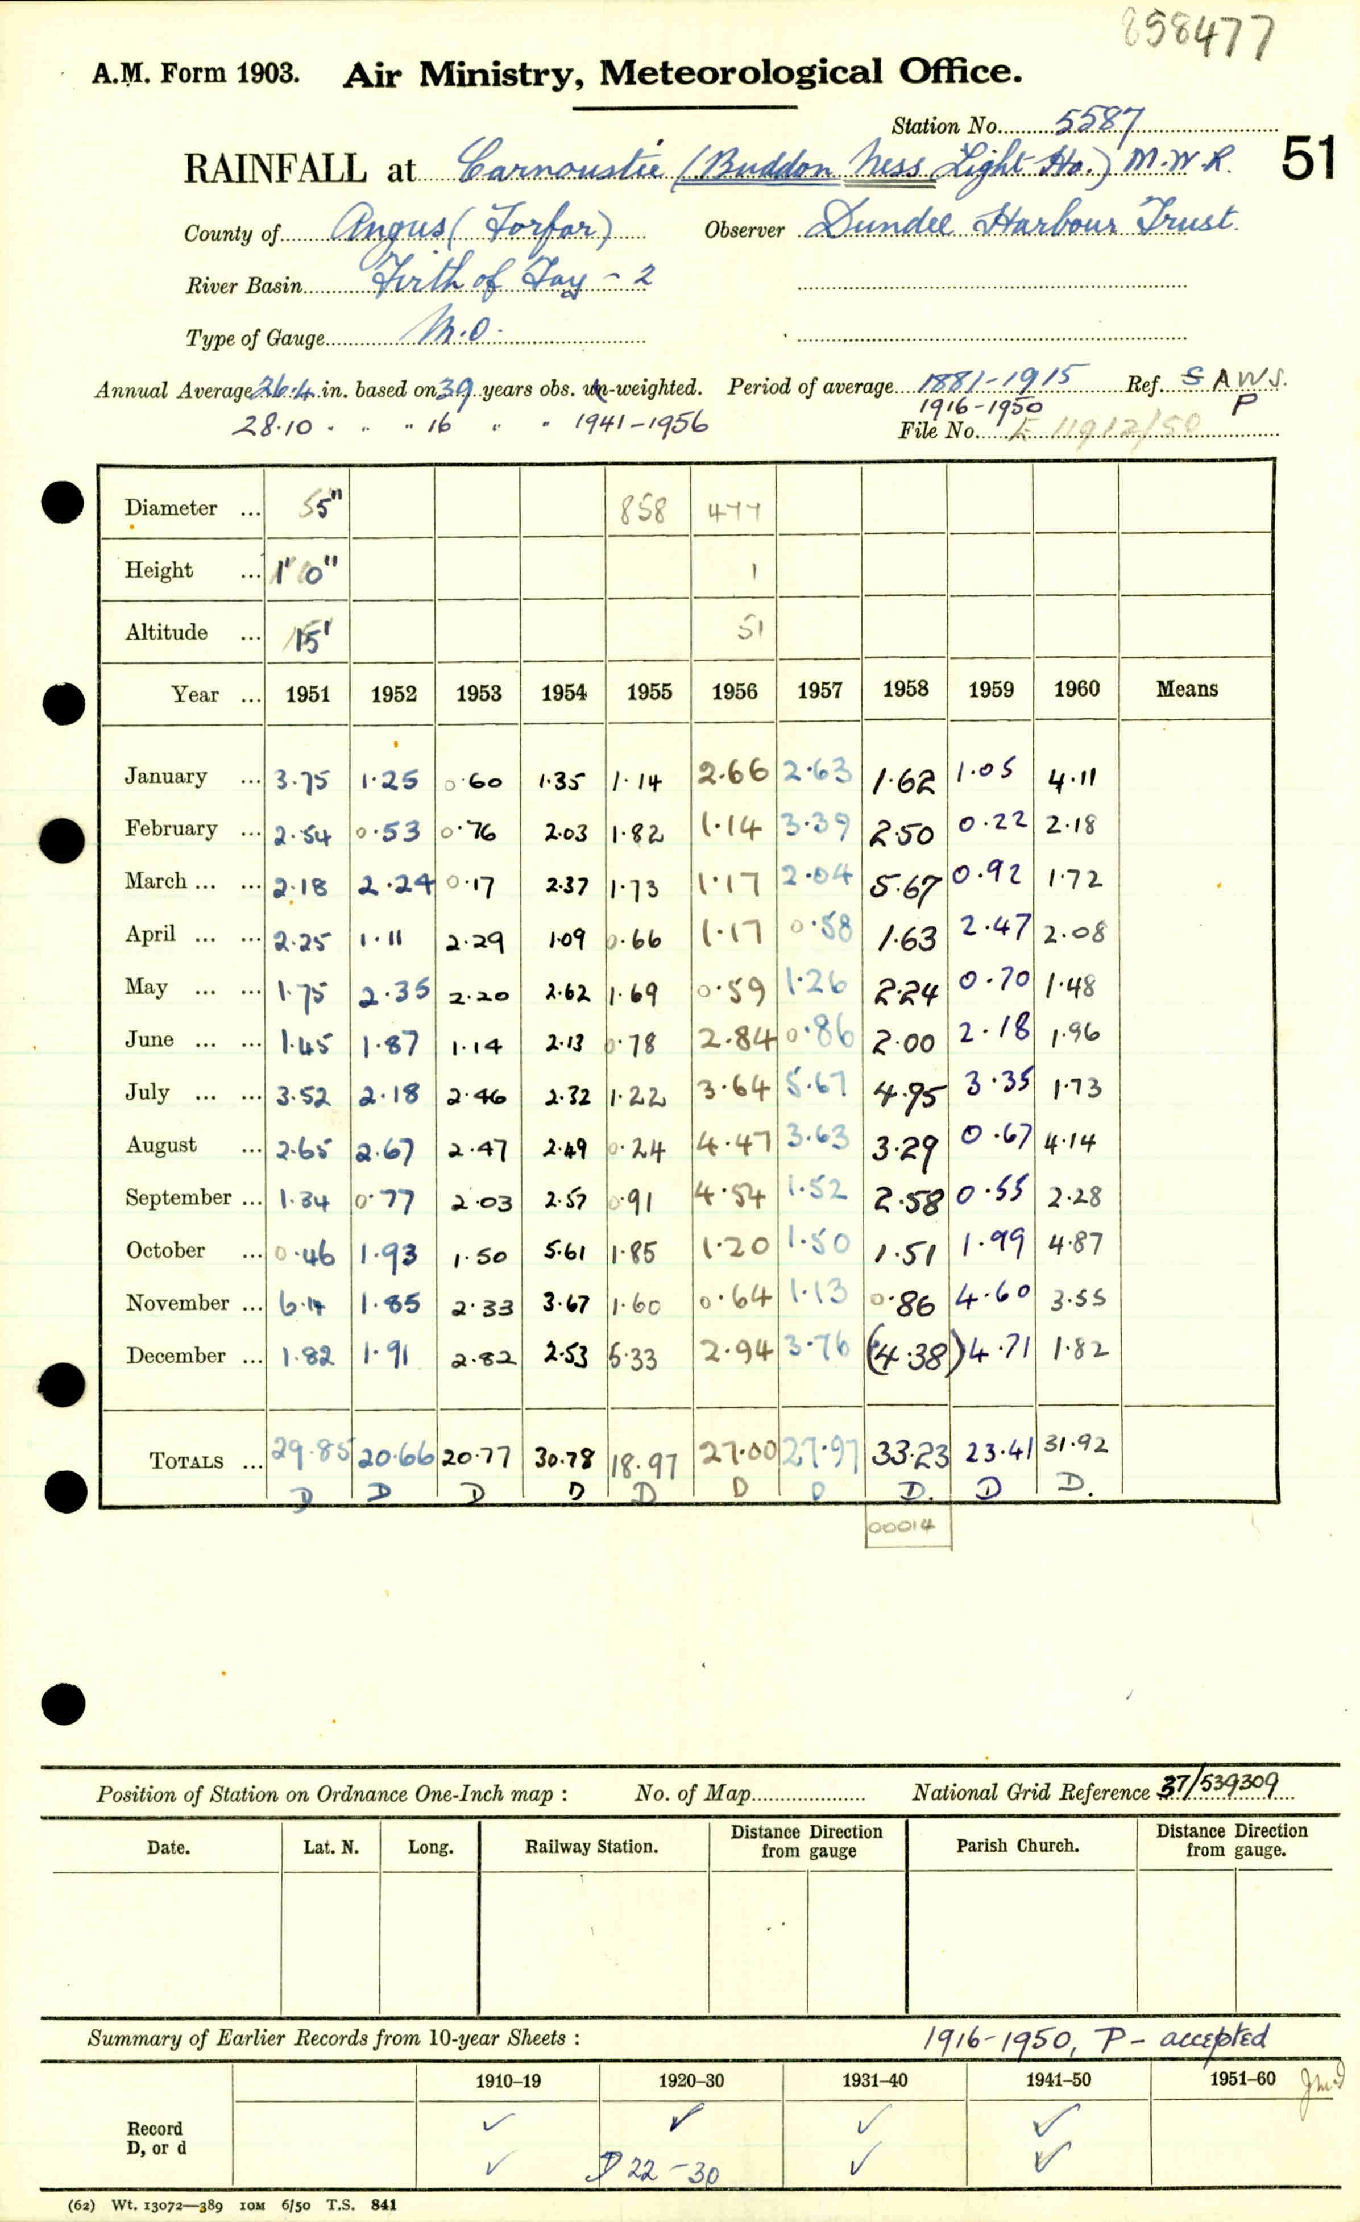 858477
A.M. Form 1903. Air Ministry, Meteorological Office.
Station No. 5587
RAINFALL at Carnoustie (Buddon Ness Light Ho.) M.W.R. 51
County of Angus (Forfar) Observer Dundee Harbour Trust.
River Basin Firth of Tay - 2
Type of Gauge M.O.
Annual Average 26.4 in. based on 39 years obs. un-weighted. Period of average 1881-1915 Ref. S A W S.
1916-1950 P
28.10 " " " 16 " " 1941-1956 File No. E 11912/50
Diameter ... 5" 858 477
Height ... 1' 0" 1
Altitude ... 15' 51
Year ... 1951 1952 1953 1954 1955 1956 1957 1958 1959 1960 Means
January ... 3.75 1.25 0.60 1.35 1.14 2.66 2.63 1.62 1.05 4.11
February ... 2.54 0.53 0.76 2.03 1.82 1.14 3.39 2.50 0.22 2.18
March ... ... 2.18 2.24 0.17 2.37 1.73 1.17 2.04 5.67 0.92 1.72
April ... ... 2.25 1.11 2.29 1.09 0.66 1.17 0.58 1.63 2.47 2.08
May ... ... 1.75 2.35 2.20 2.62 1.69 0.59 1.26 2.24 0.70 1.48
June ... ... 1.45 1.87 1.14 2.13 0.78 2.84 0.86 2.00 2.18 1.96
July ... ... 3.52 2.18 2.46 2.32 1.22 3.64 5.67 4.95 3.35 1.73
August ... 2.65 2.67 2.47 2.49 0.24 4.47 3.63 3.29 0.67 4.14
September ... 1.34 0.77 2.03 2.57 0.91 4.54 1.52 2.58 0.55 2.28
October ... 0.46 1.93 1.50 5.61 1.85 1.20 1.50 1.51 1.99 4.87
November ... 6.14 1.85 2.33 3.67 1.60 0.64 1.13 0.86 4.60 3.55
December ... 1.82 1.91 2.82 2.53 5.33 2.94 3.76 (4.38) 4.71 1.82
TOTALS ... 29.85 20.66 20.77 30.78 18.97 27.00 27.97 33.23 23.41 31.92
D D D D D D D D. D D.
00014
Position of Station on Ordnance One-Inch map : No. of Map National Grid Reference 37/539309
Date. Lat. N. Long. Railway Station. Distance from Direction gauge Parish Church. Distance from Direction gauge.
Summary of Earlier Records from 10-year Sheets : 1916-1950, P - accepted
1910–19 1920–30 1931–40 1941–50 1951–60
Record ✓ ✓ ✓ ✓
D, or d ✓ D 22-30 ✓ ✓
(62) Wt. 13072—389 10M 6/50 T.S. 841